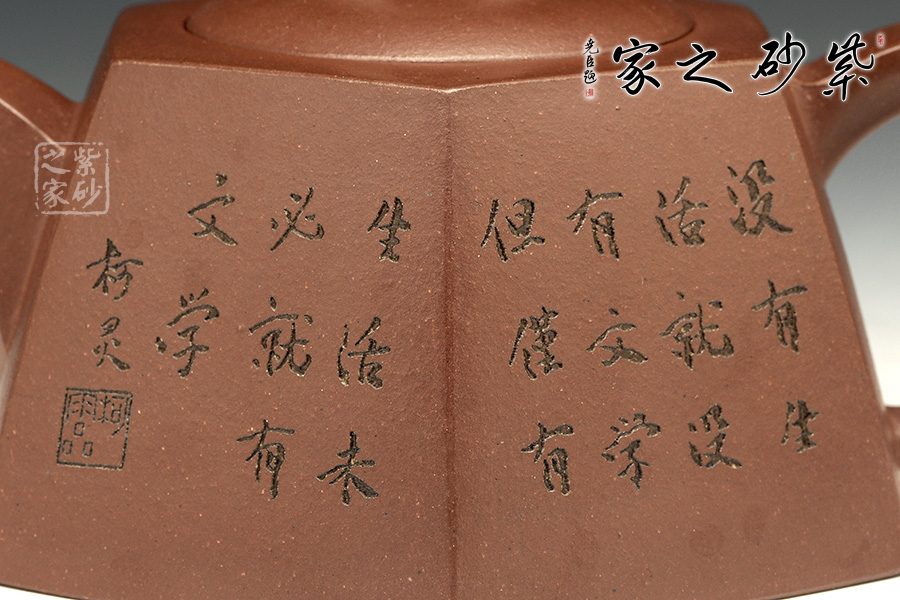 紫砂之家
尧臣题
紫砂之家
没有生
活就没
有文学
但僅有
生活未
必就有
文学
柯灵